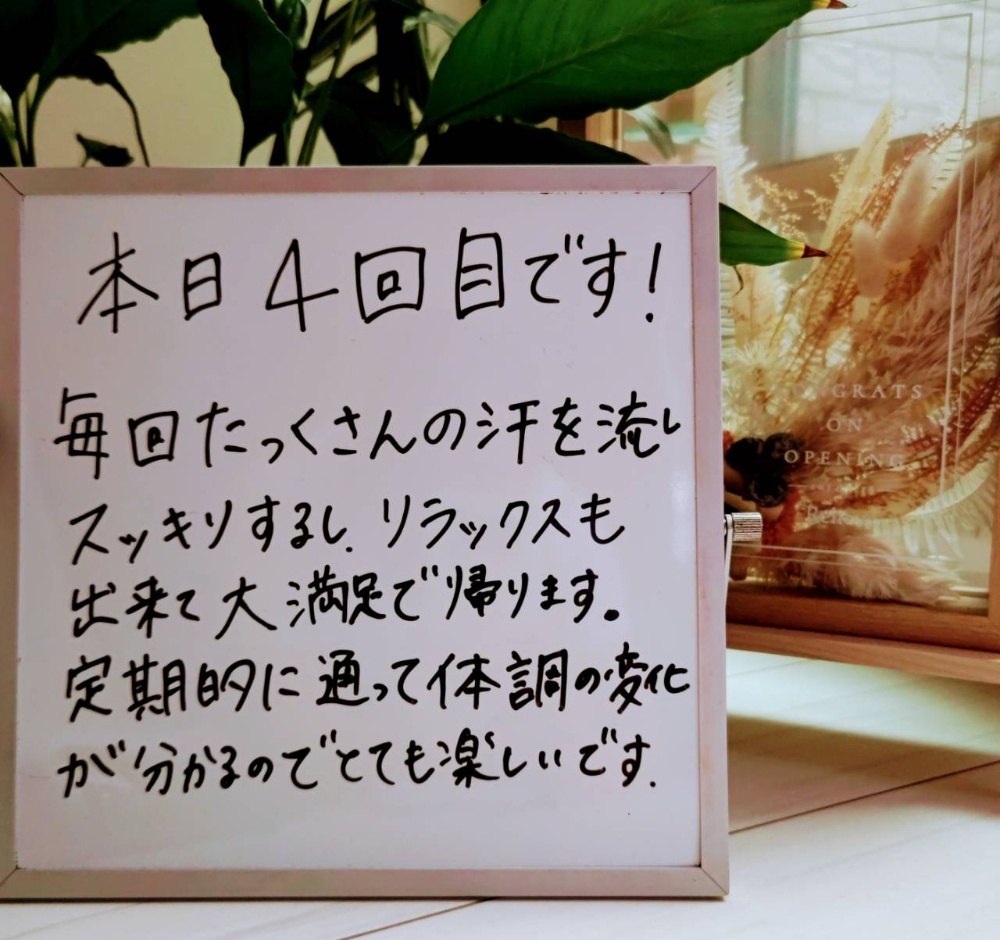 本日4回目です!
毎回たっくさんの汗を流し
スッキリするし、リラックスも
出来て大満足で帰ります。
定期的に通って体調の変化
が分かるのでとても楽しいです。
GRATS
ON
OPENING